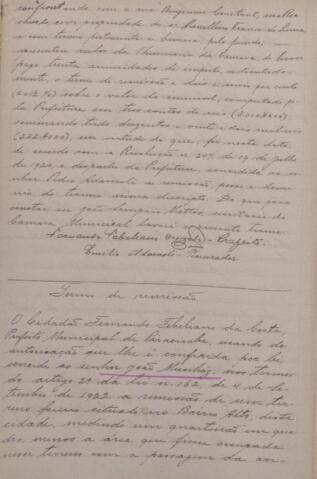 confrontando com a rua Benjamin Constant, medico
chada com propriedade de Cavalheiro Franco de Lima
e com terras pertencente a Camara, pelo fundo;
apresentou talão da Thesouraria da Camara, de haver
pago trinta annuidades do imposto, adiantada-
mente, o termo de remissão e dois e meio por cento
(2 1/2 %) sobre o valor do immovel, computado p.la
Prefeitura em tres contos de reis
sommando tudo duzentos e vinte e dois mil reis
(222$000), em virtude do que, foi nesta data,
de accordo com a Resolução n. de 19 de Julho
de 1920, e despacho da Prefeitura, concedida ao se-
nhor Pedro Adamoli a remissão, posse e domi-
nio do terreno acima descripto. Do que para
constar, eu João Sampaio Mattos, secretario da
Camara Municipal lavrei o presente termo.
Fernando Febeliano da Costa - Prefeito.
Emilio Adamoli - Procurador
Termo de remissão
O Cidadão Fernando Febeliano da Costa,
Prefeito Municipal de Piracicaba, usando da
autorisação que lhe é conferida por lei
concede ao senhor João Munhóz, nos termos
do artigo 20 da lei n. 162, de 4 de Se-
tembro de 1922 a remissão de um ter-
reno foreiro situado no Bairro Alto, desta
cidade, medindo um quarteirão em qua-
dro, menos a área que ficou occupada
nesse terreno com a passagem da an-